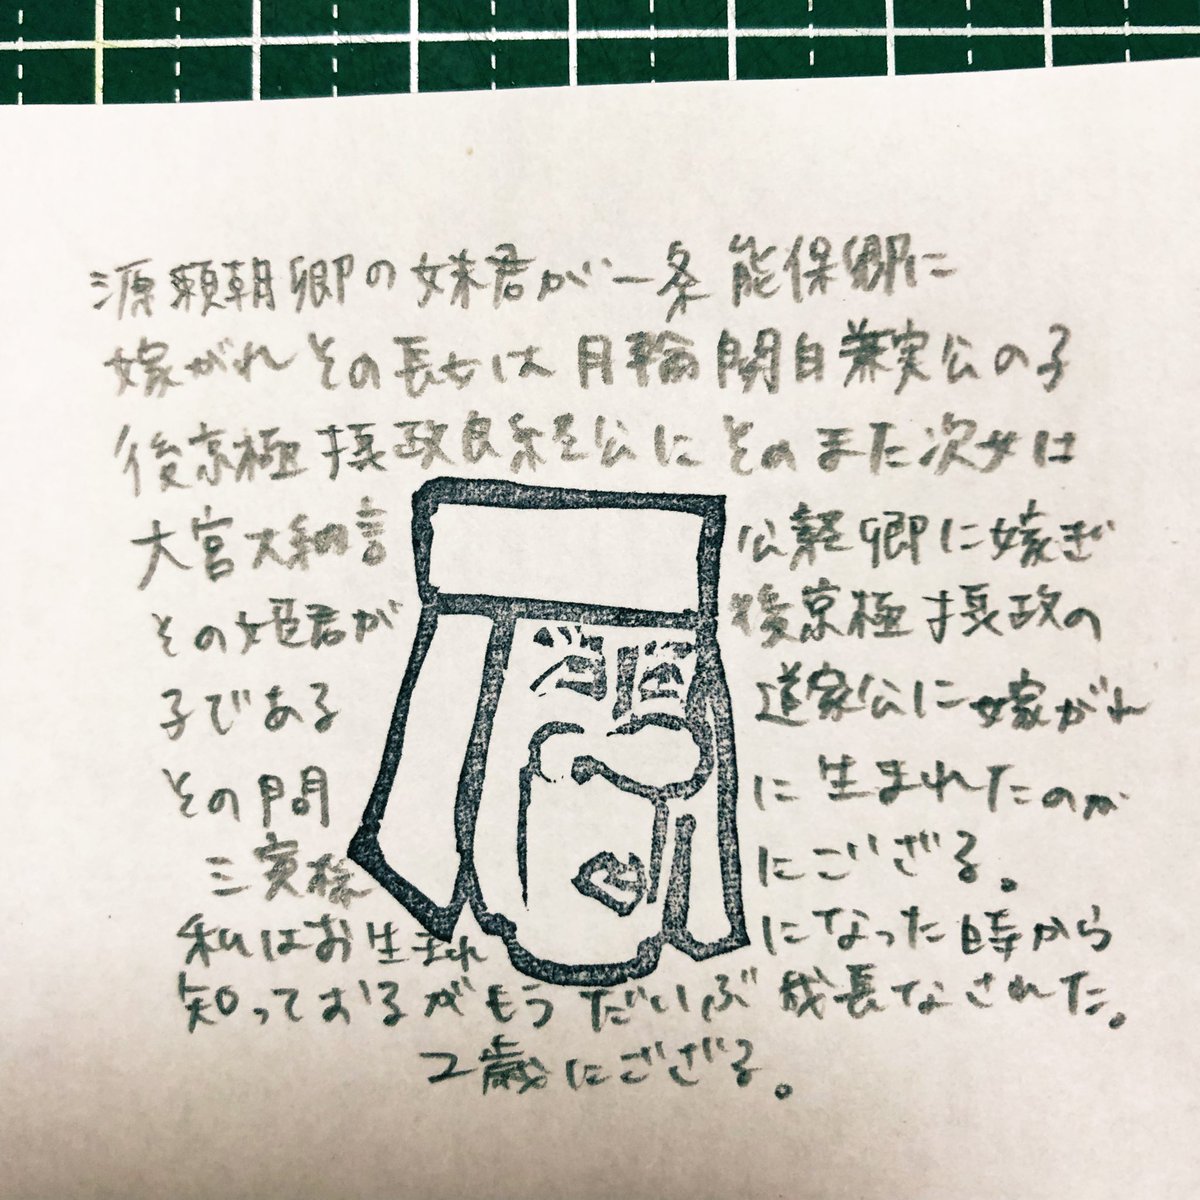 源頼朝卿の妹君が一条 能保卿に
嫁がれ その長女は 月輪関白兼実公の子
後京極摂政良経公に そのまた次女は
大宮大納言 公経卿に嫁ぎ
その姫君が 後京極摂政の
子である 道家公に嫁がれ
その間 に生まれたのが
三寅様 にございざる。
私はお生まれ になった時から
知っておるがもう だいぶ成長なされた。
2歳にござざる。